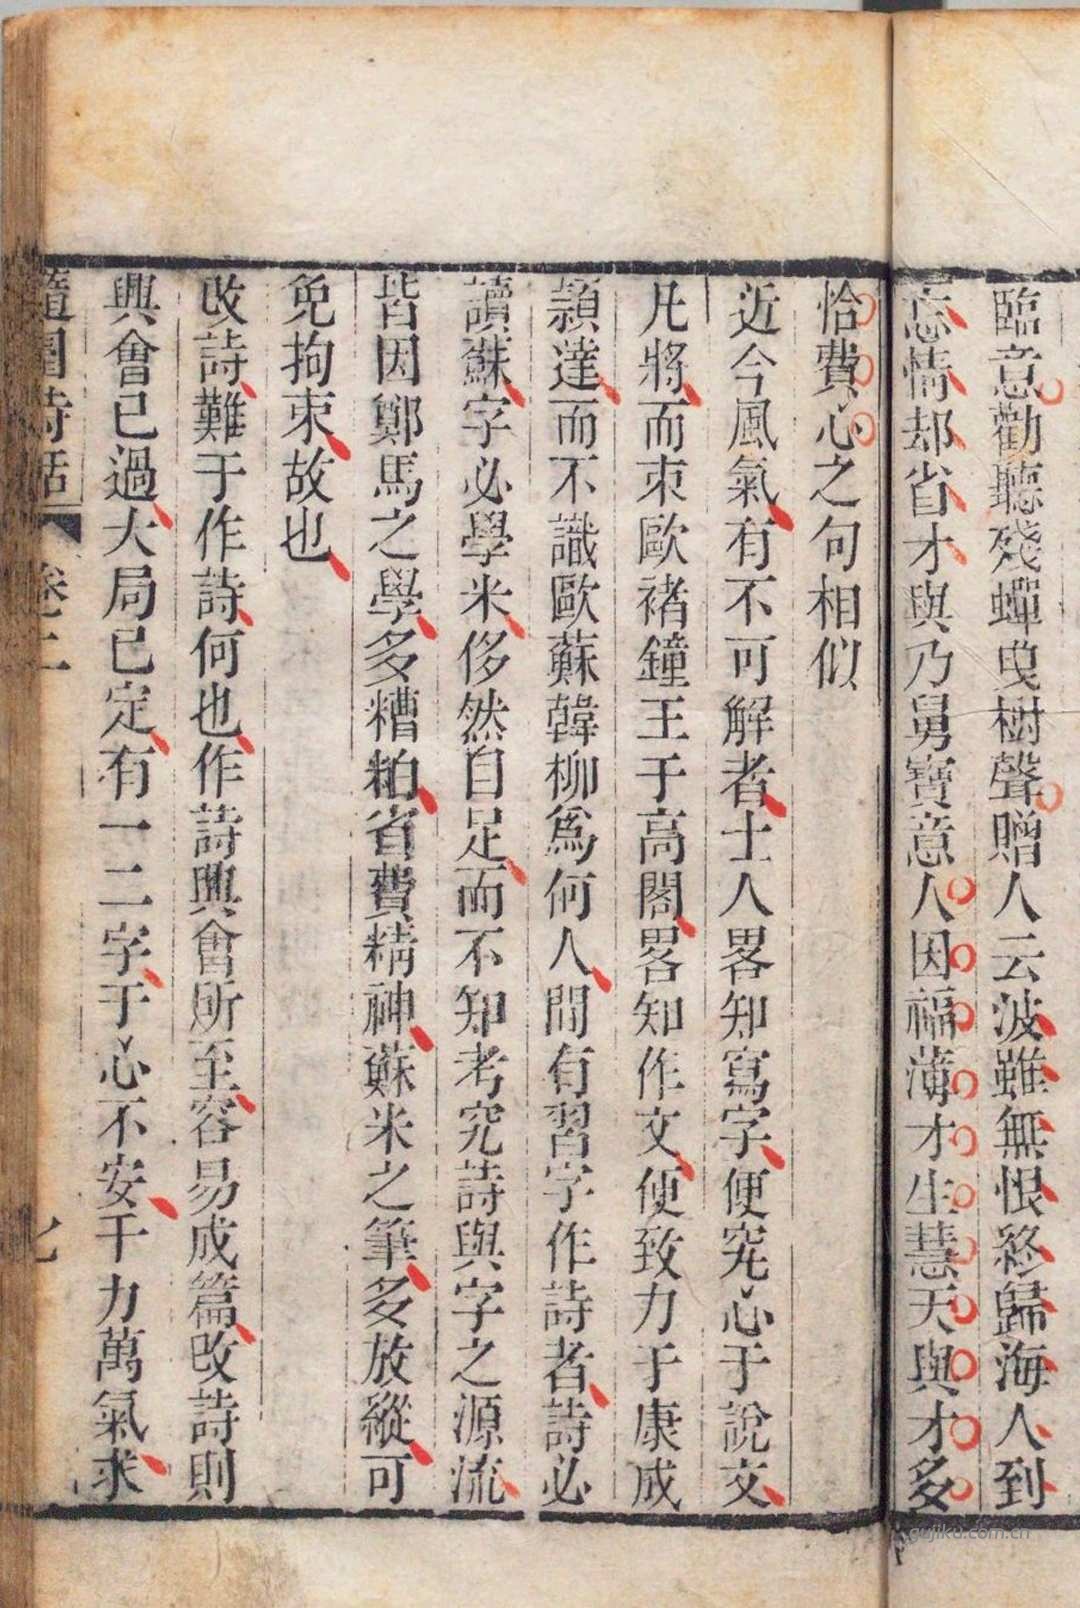 臨意勸聽殘蟬曳樹聲贈人云波雖無恨終歸海人到
忘情却省才與乃舅寶意人因福薄才生慧天與才多
恰費心之句相似
近今風氣有不可解者士人畧知寫字便究心于說文
凡將而束歐褚鐘王于高閣畧知作文便致力于康成
頴達而不識歐蘇韓柳爲何人間有習字作詩者詩必
讀蘇字必學米侈然自足而不知考究詩與字之源流
皆因鄭馬之學多糟粕省費精神蘇米之筆多放縱可
免拘束故也
改詩難于作詩何也作詩興會所至容易成篇改詩則
興會已過大局已定有一二字于心不安千力萬氣求
隨園詩話 卷二
gujiku.com.cn